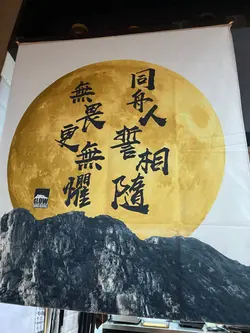 同舟人
誓相隨
無畏
更無懼
GLOW